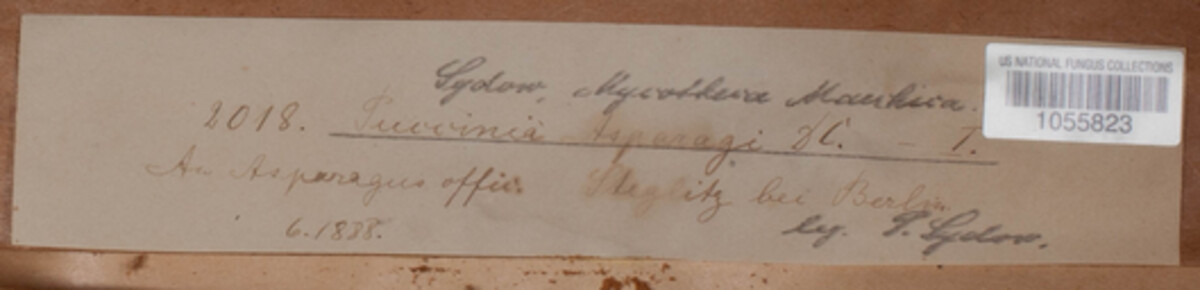 Sydow, Mycotheca Marchica.
US NATIONAL FUNGUS COLLECTIONS
1055823
2018. Puccinia Asparagi DC. – I.
An Asparagus offic. Steglitz bei Berlin
6.1888.
leg. P. Sydow.